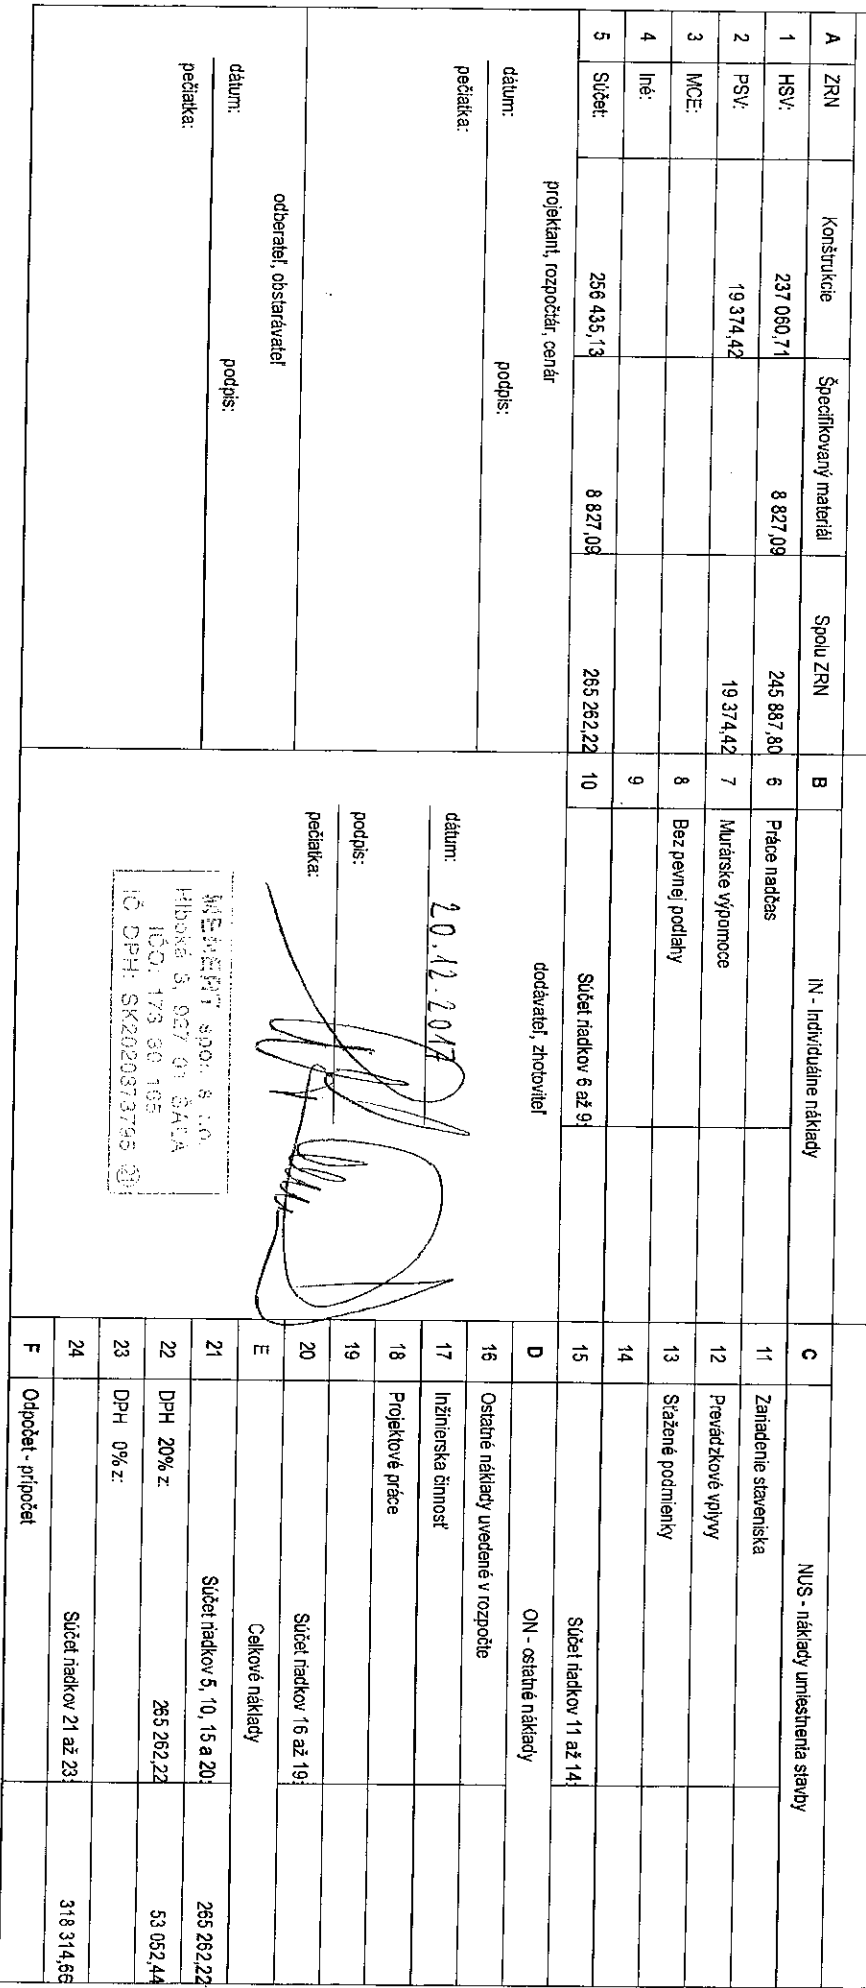 A ZRN Konštrukcie Špecifikovaný materiál Spolu ZRN
1 HSV: 237 060,71 8 827,09 245 887,80
2 PSV: 19 374,42 19 374,42
3 MCE:
4 Iné:
5 Súčet: 256 435,13 8 827,09 265 262,22
projektant, rozpočtár, cenár
dátum: podpis:
pečiatka:
odberateľ, obstarávateľ
dátum: podpis:
pečiatka:
B IN - Individuálne náklady
6 Práce nadčas
7 Murárske výpomoce
8 Bez pevnej podlahy
9
10 Súčet riadkov 6 až 9:
dodávateľ, zhotoviteľ
dátum: 20.12.2017
podpis:
pečiatka:
spol. s r.o.
Hlboká 3, 927 01 ŠAĽA
IČO: 173 30 165
IČ DPH: SK2020373795
C NUS - náklady umiestnenia stavby
11 Zariadenie staveniska
12 Prevádzkové vplyvy
13 Sťažené podmienky
14
15 Súčet riadkov 11 až 14:
D ON - ostatné náklady
16 Ostatné náklady uvedené v rozpočte
17 Inžinierska činnosť
18 Projektové práce
19
20 Súčet riadkov 16 až 19:
E Celkové náklady
21 Súčet riadkov 5, 10, 15 a 20: 265 262,22
22 DPH 20% z: 265 262,22 53 052,44
23 DPH 0% z:
24 Súčet riadkov 21 až 23: 318 314,66
F Odpočet - prípočet